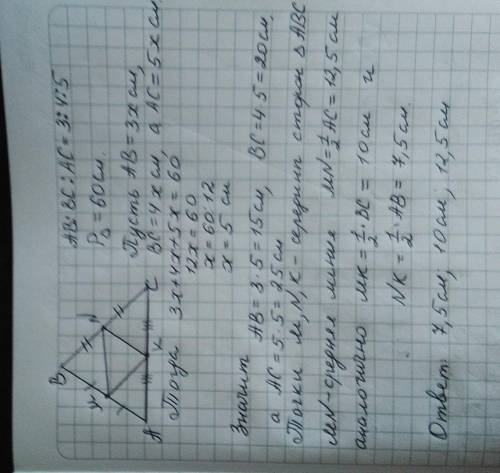 AB:BC:AC = 3:4:5
P∆ = 60см
Пусть AB = 3x см,
BC = 4x см, а AC = 5x см
Тогда 3x+4x+5x = 60
12x = 60
x = 60:12
x = 5 см
B
M
N
A
K
C
Значит AB = 3·5 = 15см, BC = 4·5 = 20см,
а AC = 5·5 = 25см
Точки M, N, K – середины сторон ∆ABC
MN – средняя линия MN = 1/2 AC = 12,5см
аналогично MK = 1/2·BC = 10см и
NK = 1/2·AB = 7,5см
Ответ: 7,5см, 10см, 12,5см